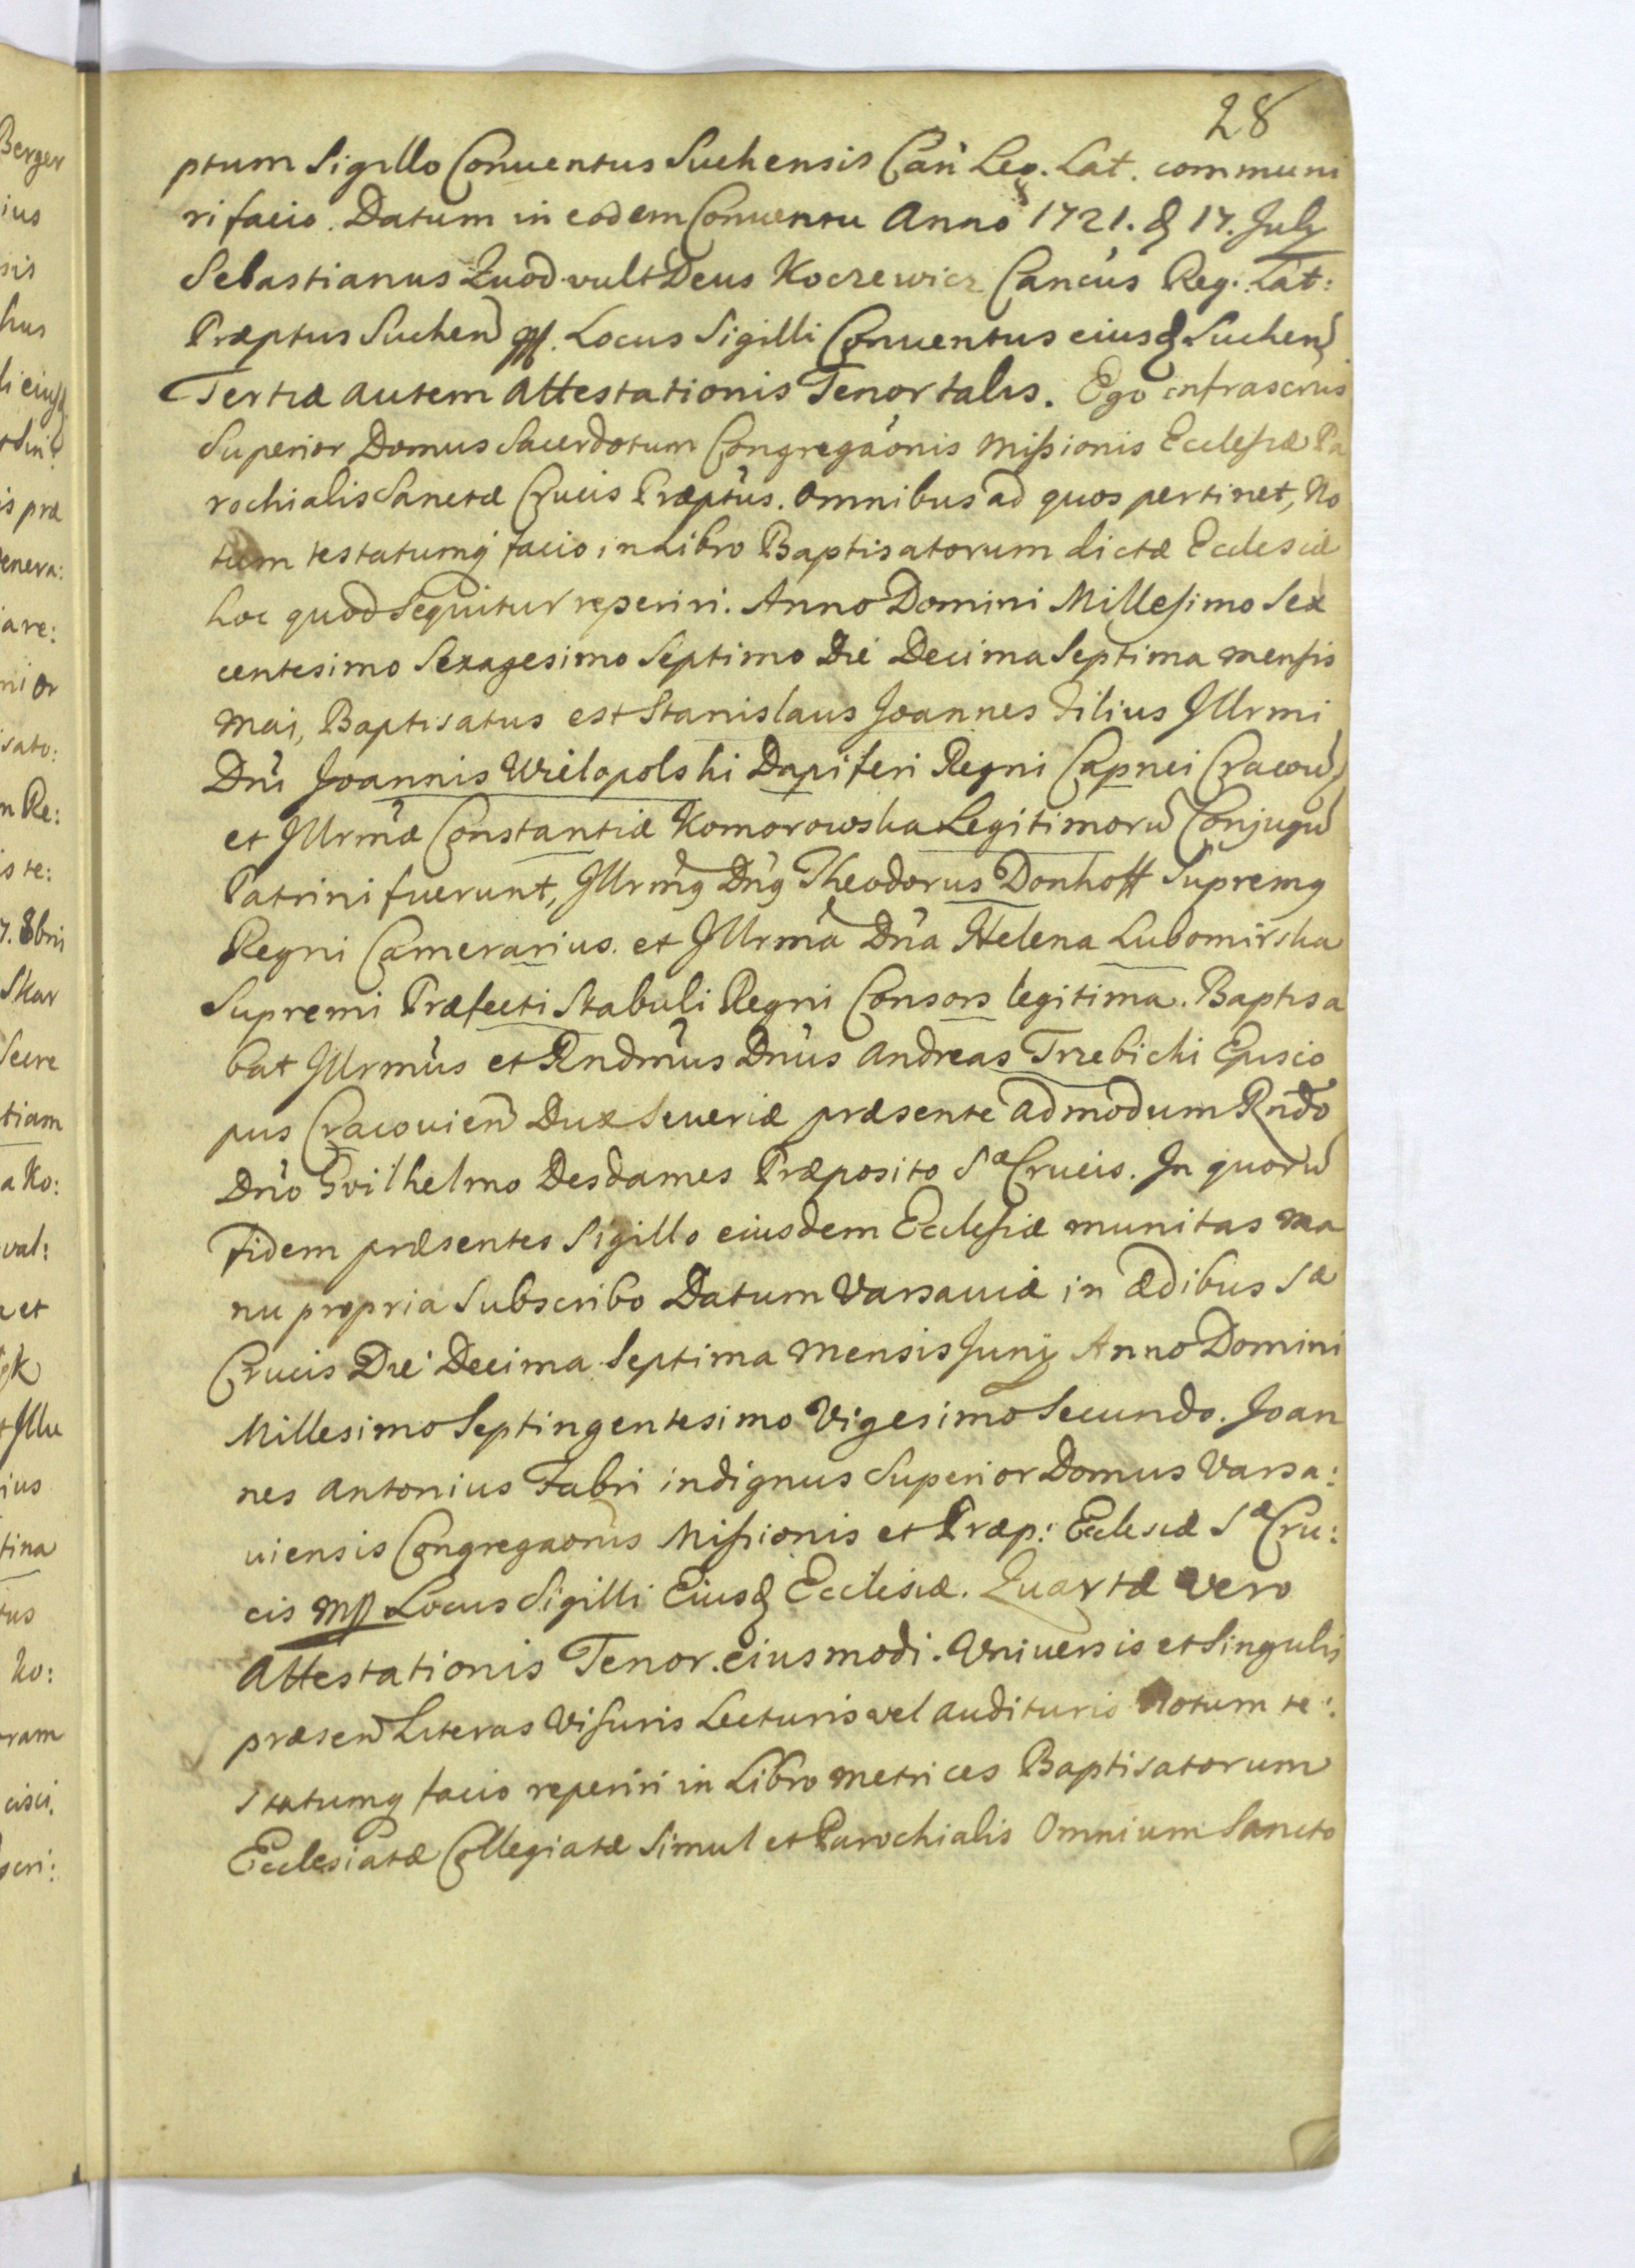 28
ptum Sigillo Conventus Suchensis Can Reg. Lat. communi
ri facio. Datum in eodem Conventu Anno 1721. d 17. July
Sebastianus Quod vult Deus Koczewicz Cancus Reg. Lat:
Præptus Suchen mp. Locus Sigilli Conventus eiusd Suchen
Tertiæ autem Attestationis Tenor talis. Ego infrascrus
Superior Domus Sacerdotum Congregaonis Missionis Ecclesiæ Pa
rochialis Sanctæ Crucis Præptus. Omnibus ad quos pertinet, No
tum testatumq facio in Libro Baptisatorum dictæ Ecclesiæ
hoc quod sequitur reperiri. Anno Domini Millesimo Sex
centesimo Sexagesimo Septimo Die Decima Septima mensis
Maij, Baptisatus est Stanislaus Joannes Filius Illrmi
Dni Joannis Wielopolski Dapiferi Regni Capnei Cracov
et Illrmæ Constantiæ Komorowska Legitimorũ Conjugũ
Patrini fuerunt, Illrmg Dng Theodorus Donhoff Supremg
Regni Camerarius. et Illrma Dna Helena Lubomirska
Supremi Præfecti Stabuli Regni Consors legitima. Baptisa
bat Illrmus et Rndmus Dnus Andreas Trzebicki Episco
pus Cracovien Dux Severiæ præsente admodum Rndo
Dno Gvilhelmo Desdames Præposito Sæ Crucis. In quorũ
fidem præsentes Sigillo eiusdem Ecclesiæ munitas ma
nu propria Subscribo Datum Varsaviæ in Ædibus Sæ
Crucis Die Decima Septima mensis Junij Anno Domini
Millesimo Septingentesimo Vigesimo Secundo. Joan
nes Antonius Fabri indignus Superior Domus Varsa:
viensis Congregaonis Missionis et Præp: Ecclesiæ Sæ Cru:
cis mp Locus Sigilli Eiusd Ecclesiæ. Quartæ vero
Attestationis Tenor. eiusmodi. Universis et Singulis
præsen Literas Visuris Lecturis vel audituris Notum te:
statumq facio reperiri in Libro metrices Baptisatorum
Ecclesiatæ Collegiatæ Simul et Parochialis Omnium Sancto